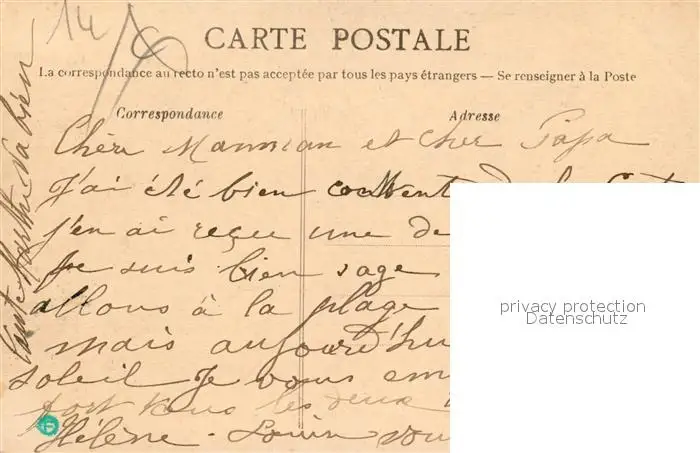 14
CARTE POSTALE
La correspondance au recto n'est pas acceptée par tous les pays étrangers — Se renseigner à la Poste
Correspondance
Adresse
Chère Manman et cher Papa
J'ai été bien content de la
j'en ai reçu une de
je suis bien sage
allons à la plage
mais aujourd'hu
soleil Je vous em
fort tous les deux
Hélène - vou
tante Marthe va bien
privacy protection
Datenschutz